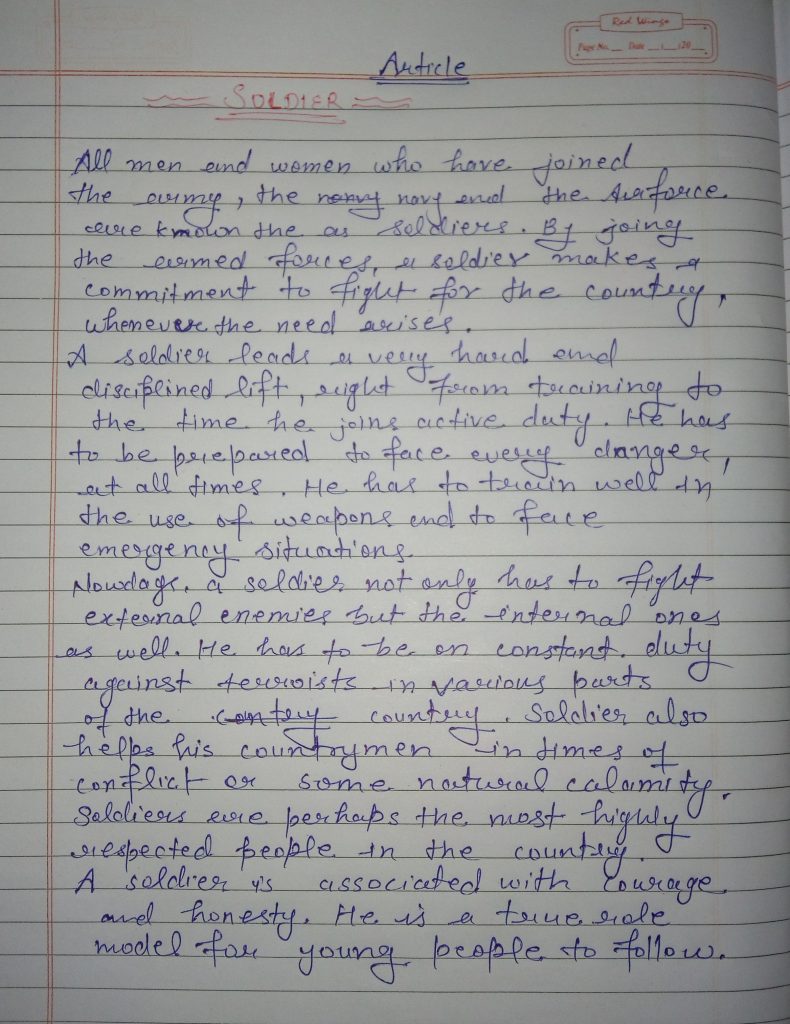 Red Wings
Page No. __ Date __/__/20__
Article
SOLDIER
All men and women who have joined
the army, the navy navy and the Airforce
are known the as soldiers. By joing
the armed forces, a soldier makes a
commitment to fight for the country,
whenever the need arises.
A soldier leads a very hard and
disciplined lift, right from training to
the time he joins active duty. He has
to be prepared to face every danger,
at all times. He has to train well in
the use of weapons and to face
emergency situations.
Nowdays, a soldier not only has to fight
external enemies but the internal ones
as well. He has to be on constant. duty
against terroists in various parts
of the country country. Soldier also
helps his countrymen in times of
conflict or some natural calamity.
Soldiers are perhaps the most highly
respected people in the country.
A soldier is associated with courage
and honesty. He is a true role
model for young people to follow.